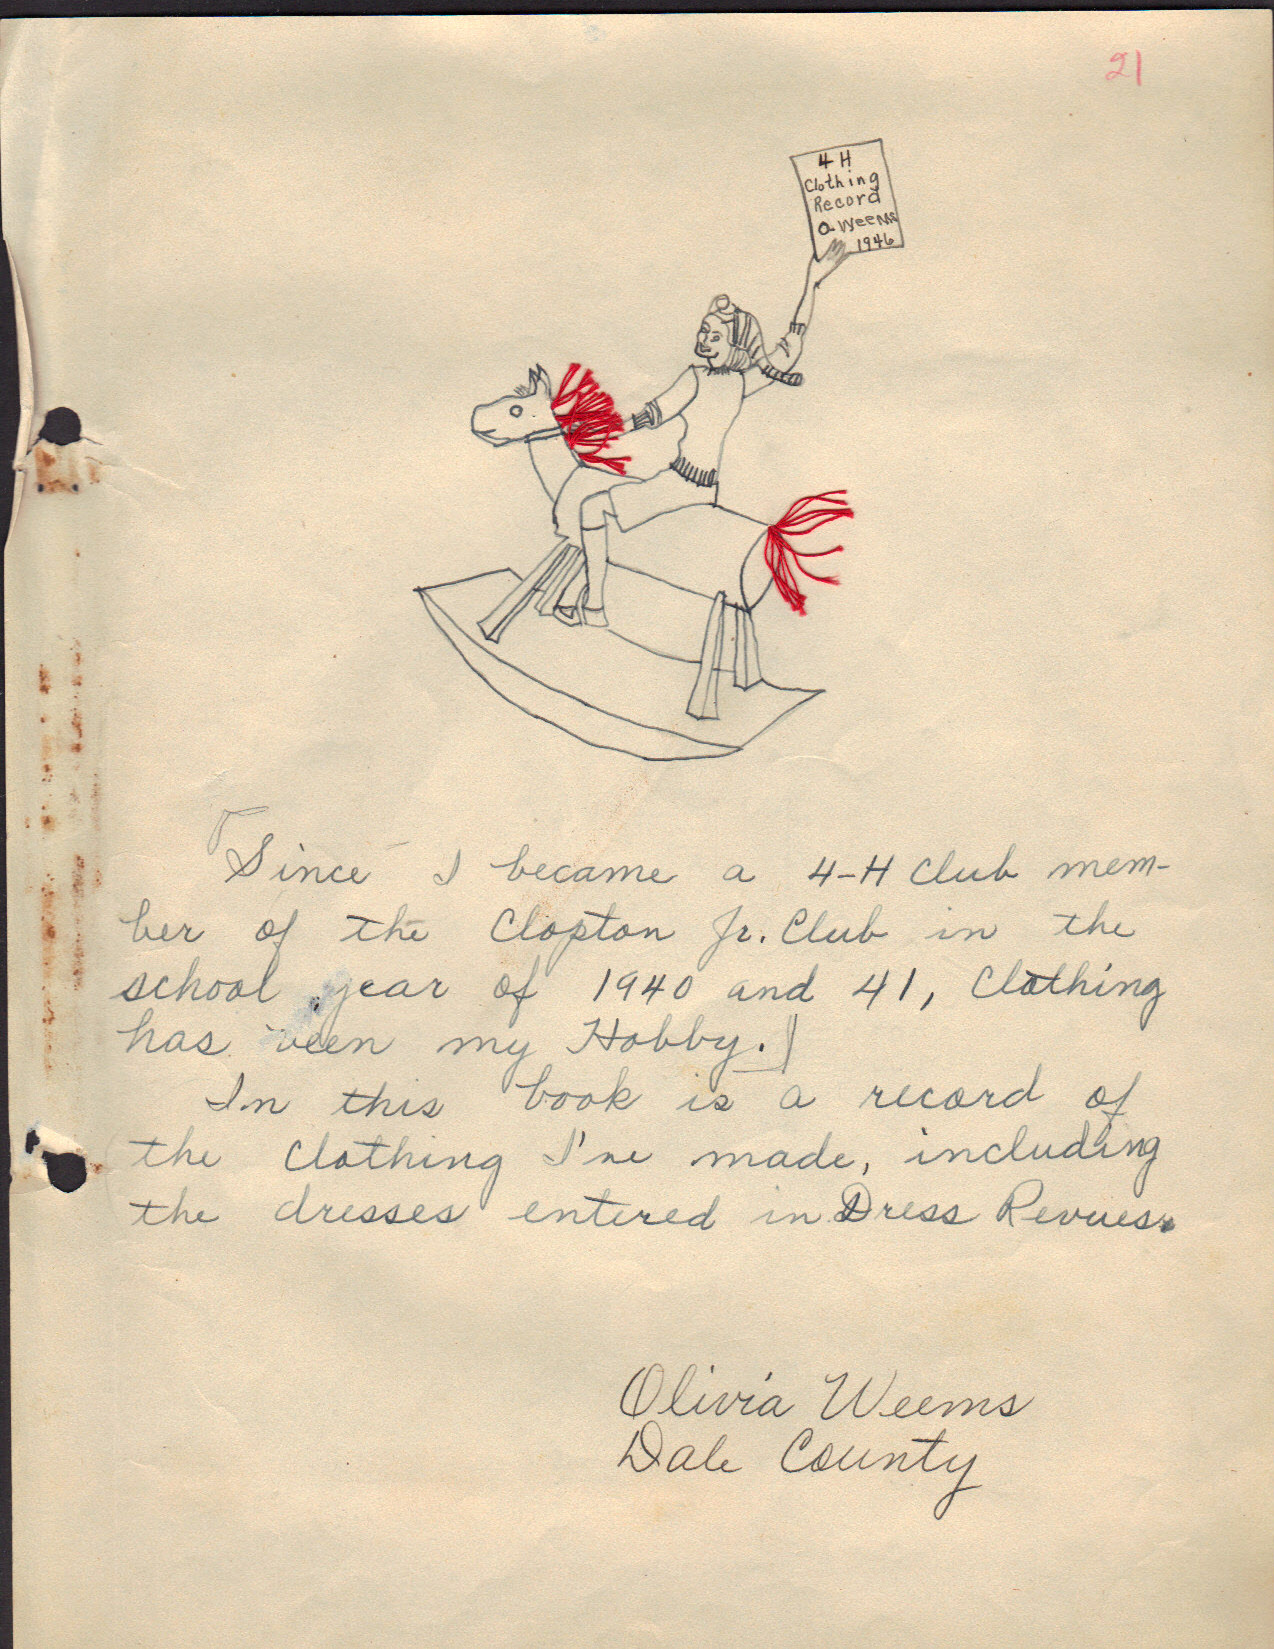 21
4 H
Clothing
Record
O. Weems
1946
Since I became a 4-H Club mem-
ber of the Clopton Jr. Club in the
school year of 1940 and 41, Clothing
has been my Hobby.
In this book is a record of
the Clothing I've made, including
the dresses entered in Dress Revues.
Olivia Weems
Dale County